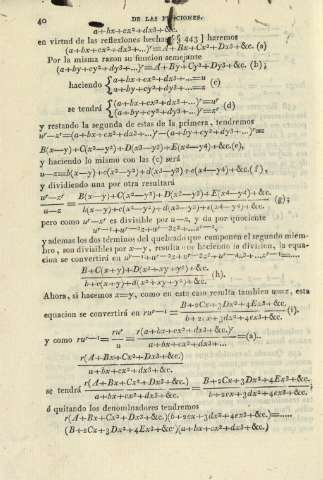 40 DE LAS FUNCIONES.
a+bx+cx²+dx3+&c.
en virtud de las reflexiones hechas [§ 443] haremos
(a+bx+cx²+dx3+...)ʳ=A+Bx+Cx²+Dx3+&c. (a)
Por la misma razon su funcion semejante
(a+by+cy²+dy3+...)ʳ=A+By+Cy²+Dy3+&c. (b);
haciendo {a+bx+cx²+dx3+...=u
{a+by+cy²+dy3+...=z (c)
se tendrá {(a+bx+cx²+dx3+...)ʳ=uʳ
{(a+by+cy²+dy3+...)ʳ=zʳ (d)
y restando la segunda de estas de la primera, tendremos
uʳ—zʳ=(a+bx+cx²+dx3+...)ʳ—(a+by+cy²+dy3+...)ʳ=
B(x—y)+C(x²—y²)+D(x3—y3)+E(x4—y4)+&c.(e),
y haciendo lo mismo con las (c) será
u—z=b(x—y)+c(x²—y²)+d(x3—y3)+e(x4—y4)+&c.(f),
y dividiendo una por otra resultará
uʳ—zʳ / u—z = B(x—y)+C(x²—y²)+D(x3—y3)+E(x4—y4)+&c. / b(x—y)+c(x²—y²)+d(x3—y3)+e(x4—y4)+&c. (g);
pero como uʳ—zʳ es divisible por u—z, y da por quociente
uʳ⁻¹+uʳ⁻²z+uʳ⁻3z²+...zʳ⁻¹,
y ademas los dos términos del quebrado que componen el segundo miem-
bro, son divisibles por x—y, resulta que haciendo la division, la equa-
cion se convertirá en uʳ⁻¹+uʳ⁻²z+uʳ⁻3z²+uʳ⁻4z3...zʳ⁻¹=
B+C(x+y)+D(x²+xy+y²)+&c.
b+c(x+y)+d(x²+xy+y²)+&c. (h).
Ahora, si hacemos x=y, como en este caso resulta tambien u=z, esta
equacion se convertirá en ruʳ⁻¹= B+2Cx+3Dx²+4Ex3+&c. / b+2cx+3dx²+4ex3+&c. (i).
y como ruʳ⁻¹= ruʳ / u = r(a+bx+cx²+dx3+&c.)ʳ / a+bx+cx²+dx3+... =(a)..
r(A+Bx+Cx²+Dx3+&c.)
a+bx+cx²+dx3+&c.
se tendrá r(A+Bx+Cx²+Dx3+&c.) / a+bx+cx²+dx3+&c. = B+2Cx+3Dx²+4Ex3+&c. / b+2cx+3dx²+4ex3+&c.
ó quitando los denominadores tendremos
r(A+Bx+Cx²+Dx3+&c.)(b+2cx+3dx²+4ex3+&c.)=.....
(B+2Cx+3Dx²+4Ex3+&c)(a+bx+cx²+dx3+&c.)